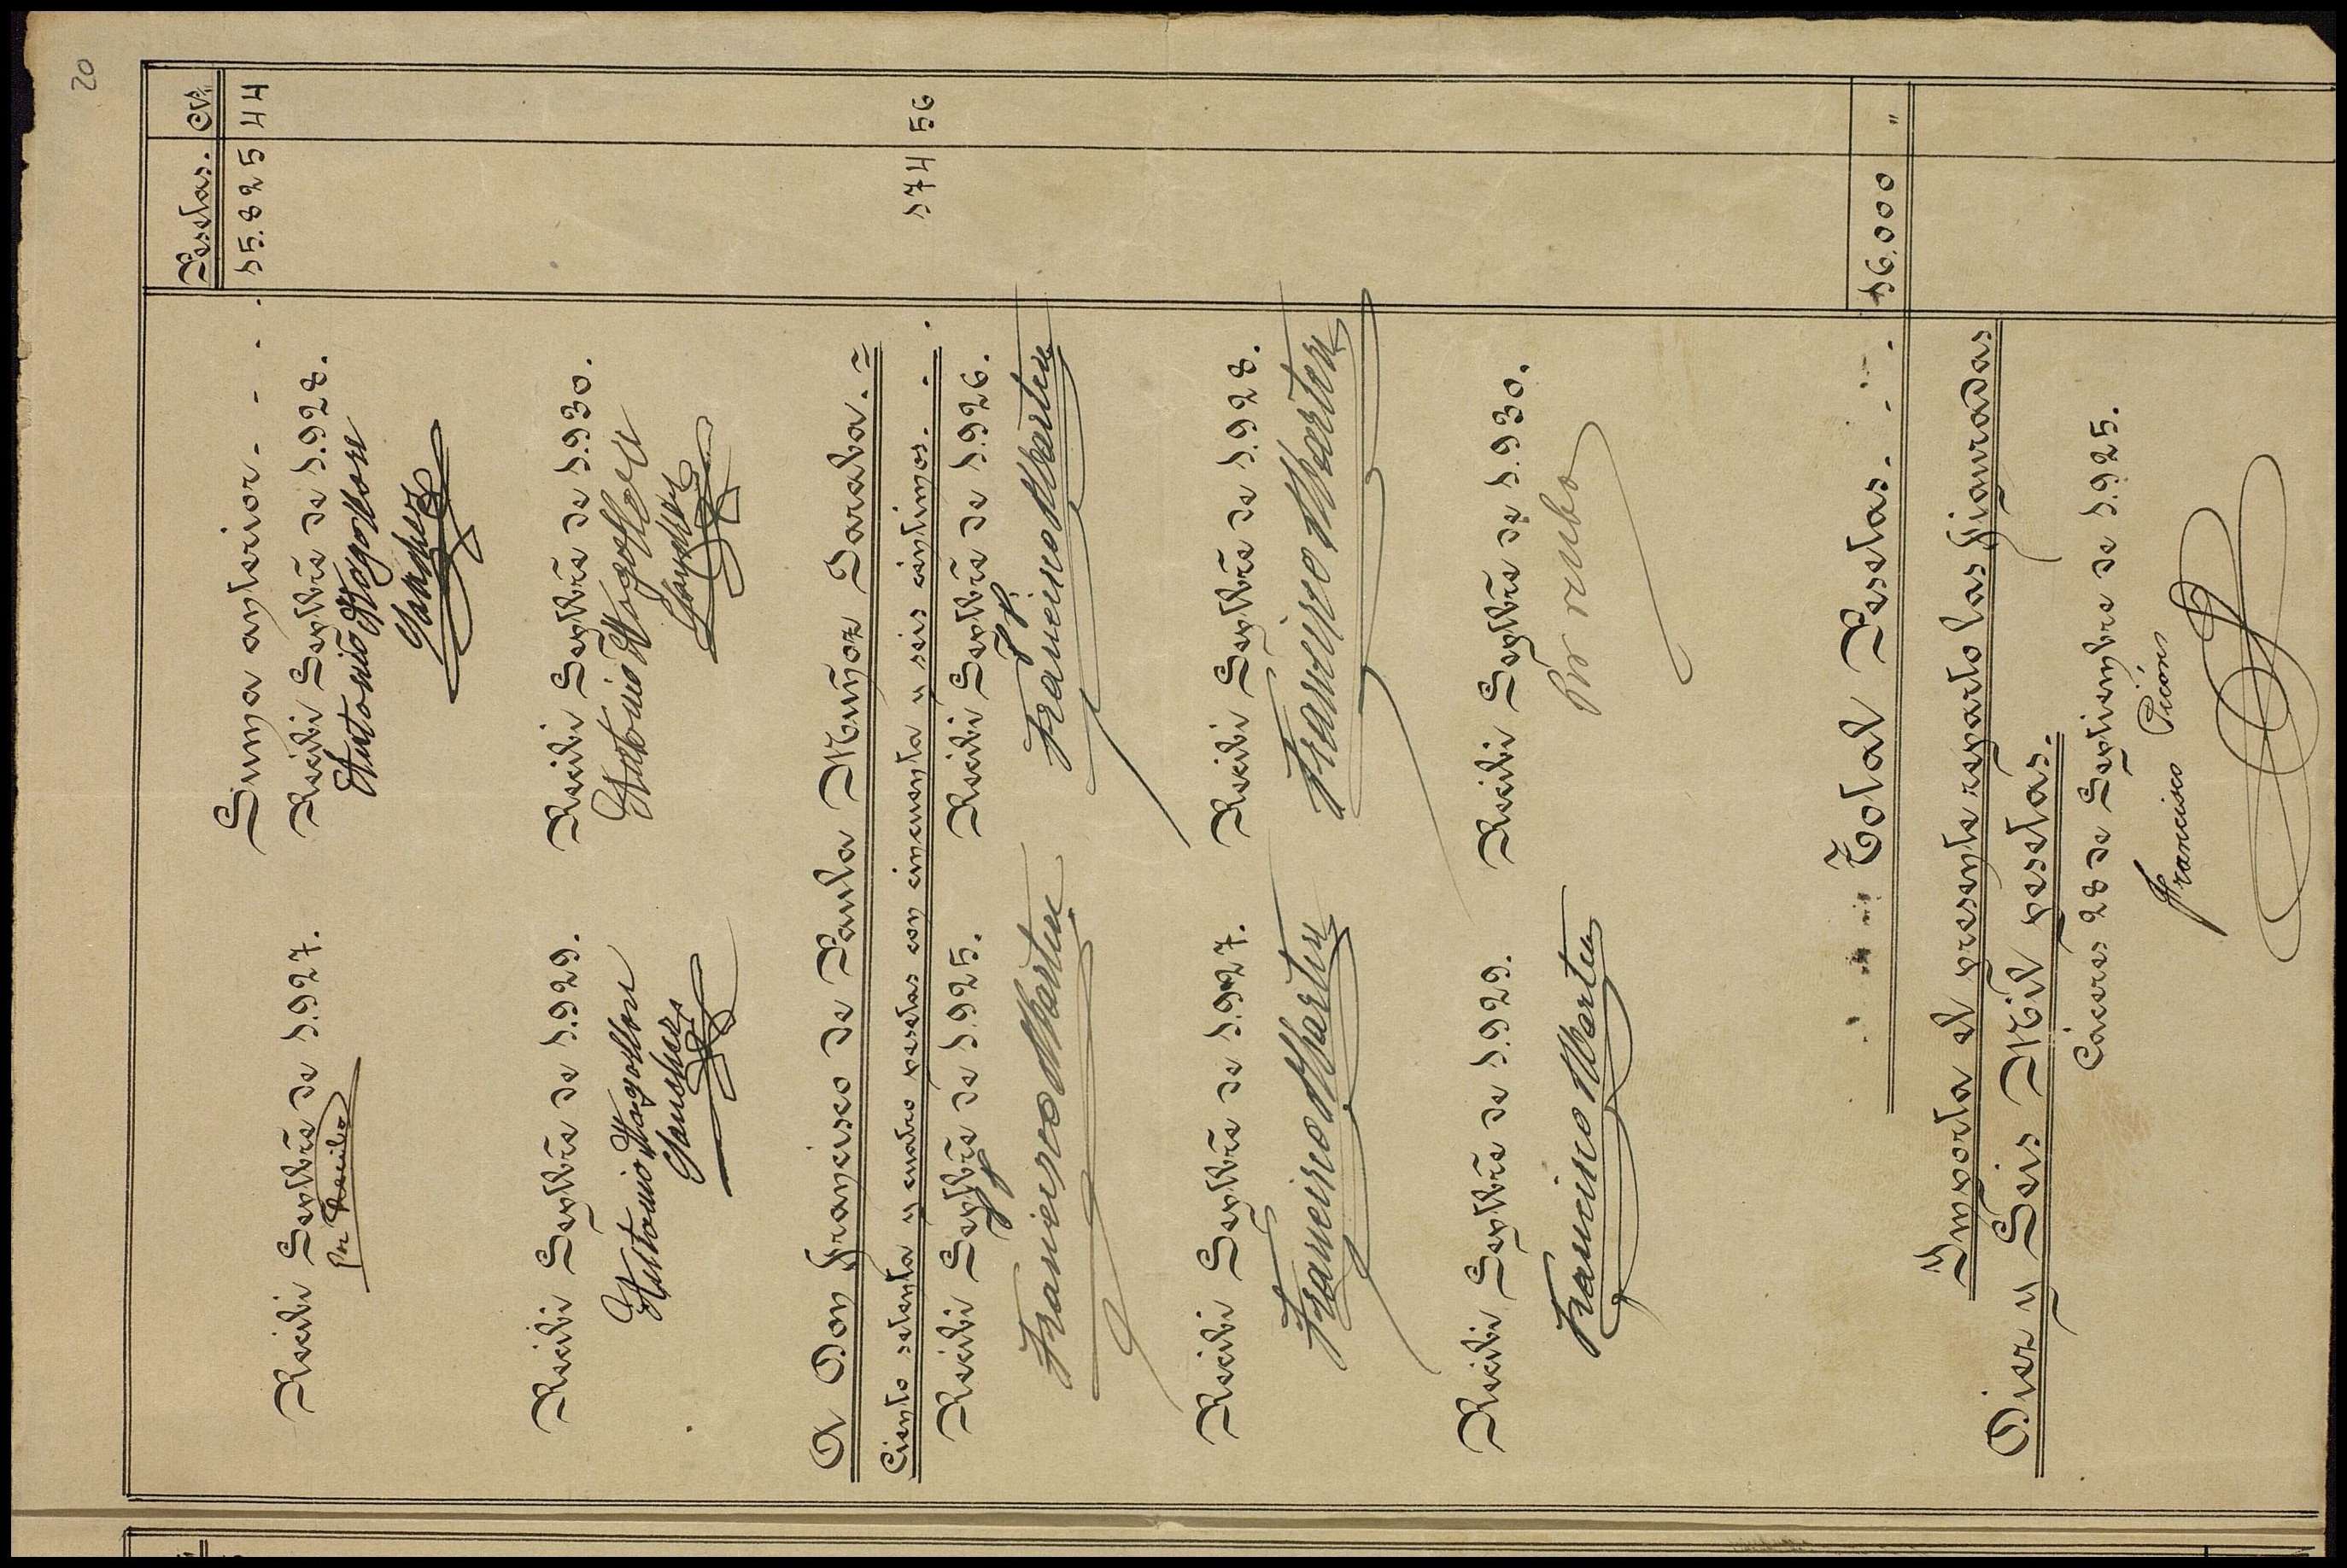 20
Pesetas. Cts.
Suma anterior - - - . 15.825 44
Recibi Septbre de 1.927. Recibi Septbre de 1.928.
Por Recibo Antonio Mogollon
Sanchez
Recibi Septbre de 1.929. Recibi Septbre de 1.930.
Antonio Mogollon Antonio Mogollon
Sanchez Sanchez
A Don Francisco de Paula Muñoz Daraba. =
Ciento setenta y cuatro pesetas con cincuenta y seis centimos. - . 174 56
Recibi Septbre de 1.925. Recibi Septbre de 1.926.
Francisco Martin Francisco Martin
Recibi Septbre de 1.927. Recibi Septbre de 1.928.
Francisco Martin Francisco Martin
Recibi Septbre de 1.929. Recibi Septbre de 1.930.
Francisco Martin Por recibo
Total Pesetas. . . . 16.000 "
Importa el presente reparto las figuradas
Diez y Seis Mil pesetas.
Cáceres 28 de Septiembre de 1.925.
Francisco Picón